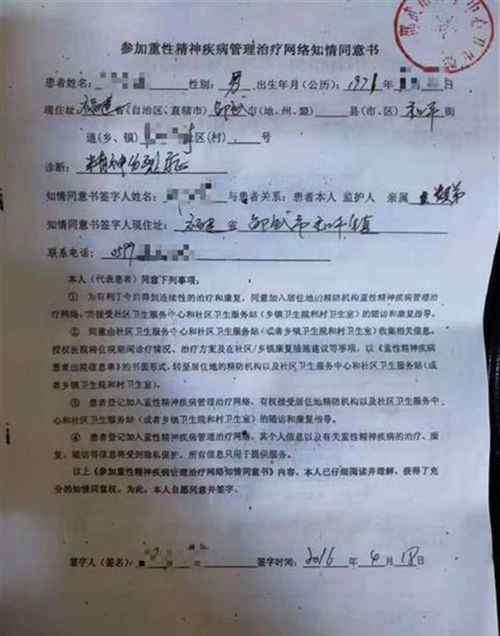 参加重性精神疾病管理治疗网络知情同意书
患者姓名: 性别: 男 出生年月(公历): 1971 年
现住址 福建 省(自治区、直辖市) 邵武 市(地、州、盟) 县(市、区) 和平 街
道(乡、镇) 社区(村) 号
诊断: 精神分裂症
知情同意书签字人姓名: 与患者关系: 患者本人 监护人 亲属
知情同意书签字人现住址: 福建 省 邵武市和平镇
联系电话: 0599
本人(代表患者)同意下列事项:
① 为有利于今后得到连续性的治疗和康复,同意加入居住地的精防机构重性精神疾病管理治
疗网络,并接受社区卫生服务中心和社区卫生服务站(乡镇卫生院和村卫生室)的随访和康复指导。
② 同意由社区卫生服务中心和社区卫生服务站(或者乡镇卫生院和村卫生室)收集相关信息,
授权医院将住院期间诊疗情况、治疗方案及在社区/乡镇康复措施建议等事项,以《重性精神疾病
患者出院信息单》的书面形式,转至居住地的精防机构以及社区卫生服务中心和社区卫生服务站(或
者乡镇卫生院和村卫生室)。
③ 患者登记加入重性精神疾病管理治疗网络,有权接受居住地精防机构以及社区卫生服务中
心和社区卫生服务站(或者乡镇卫生院和村卫生室)的随访和康复指导。
④ 患者登记加入重性精神疾病管理治疗网络,其个人信息以及有关重性精神疾病的治疗、康
复、随访等信息将受到隐私保护,所有信息只用于提供服务。
以上《参加重性精神疾病管理治疗网络知情同意书》内容,本人已仔细阅读并理解,获得了充
分的知情同意权,为此,本人自愿同意并签字。
签字人(签名): 年 签字时间: 2016 年 4 月 18 日